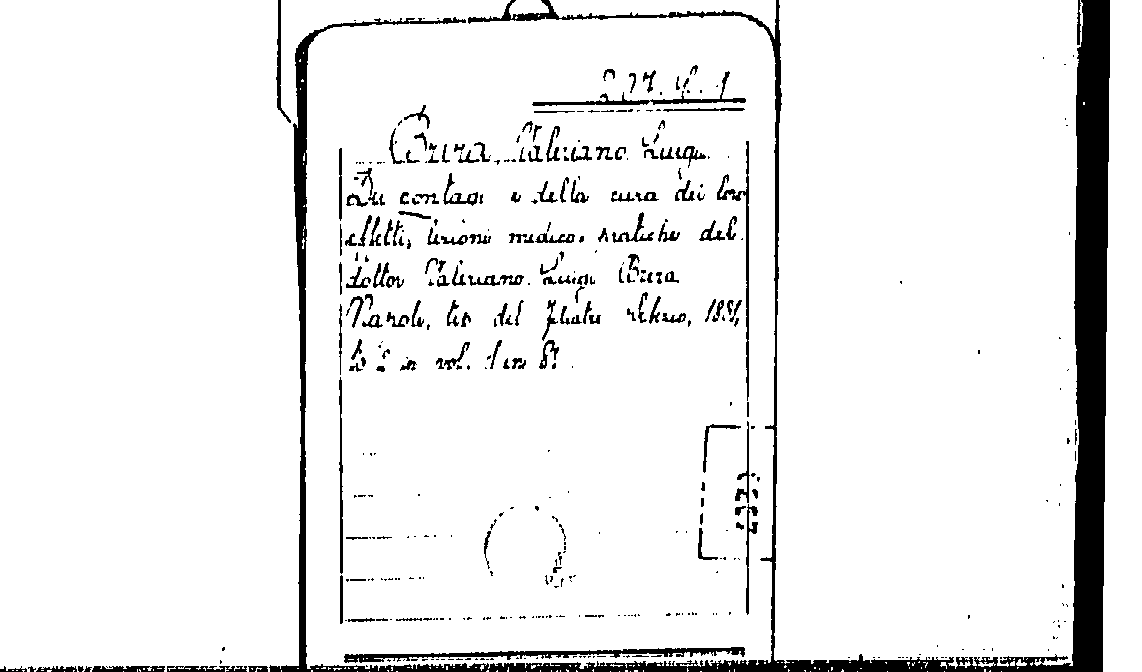 207. C. 1
Brera, Valeriano Luigi
Dei contagi e della cura dei loro
effetti, lezioni medico-pratiche del
dottor Valeriano Luigi Brera
Napoli, tip. del
vol. in 8º